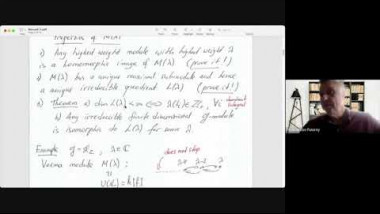 Properties of M(λ)
1) Any highest weight module with highest weight λ
is a homomorphic image of M(λ) (prove it!)
2) M(λ) has a unique maximal submodule and hence
a unique irreducible quotient L(λ) (prove it!)
3) Theorem a) dim L(λ) < ∞ ⟺ λ(hᵢ) ∈ ℤ≥0 ∀i dominant integral
b) Any irreducible finite dimensional g-module
is isomorphic to L(λ) for some λ.
Example g = sl₂, λ ∈ ℂ
does not stop
Verma module M(λ):
λ-2 λ